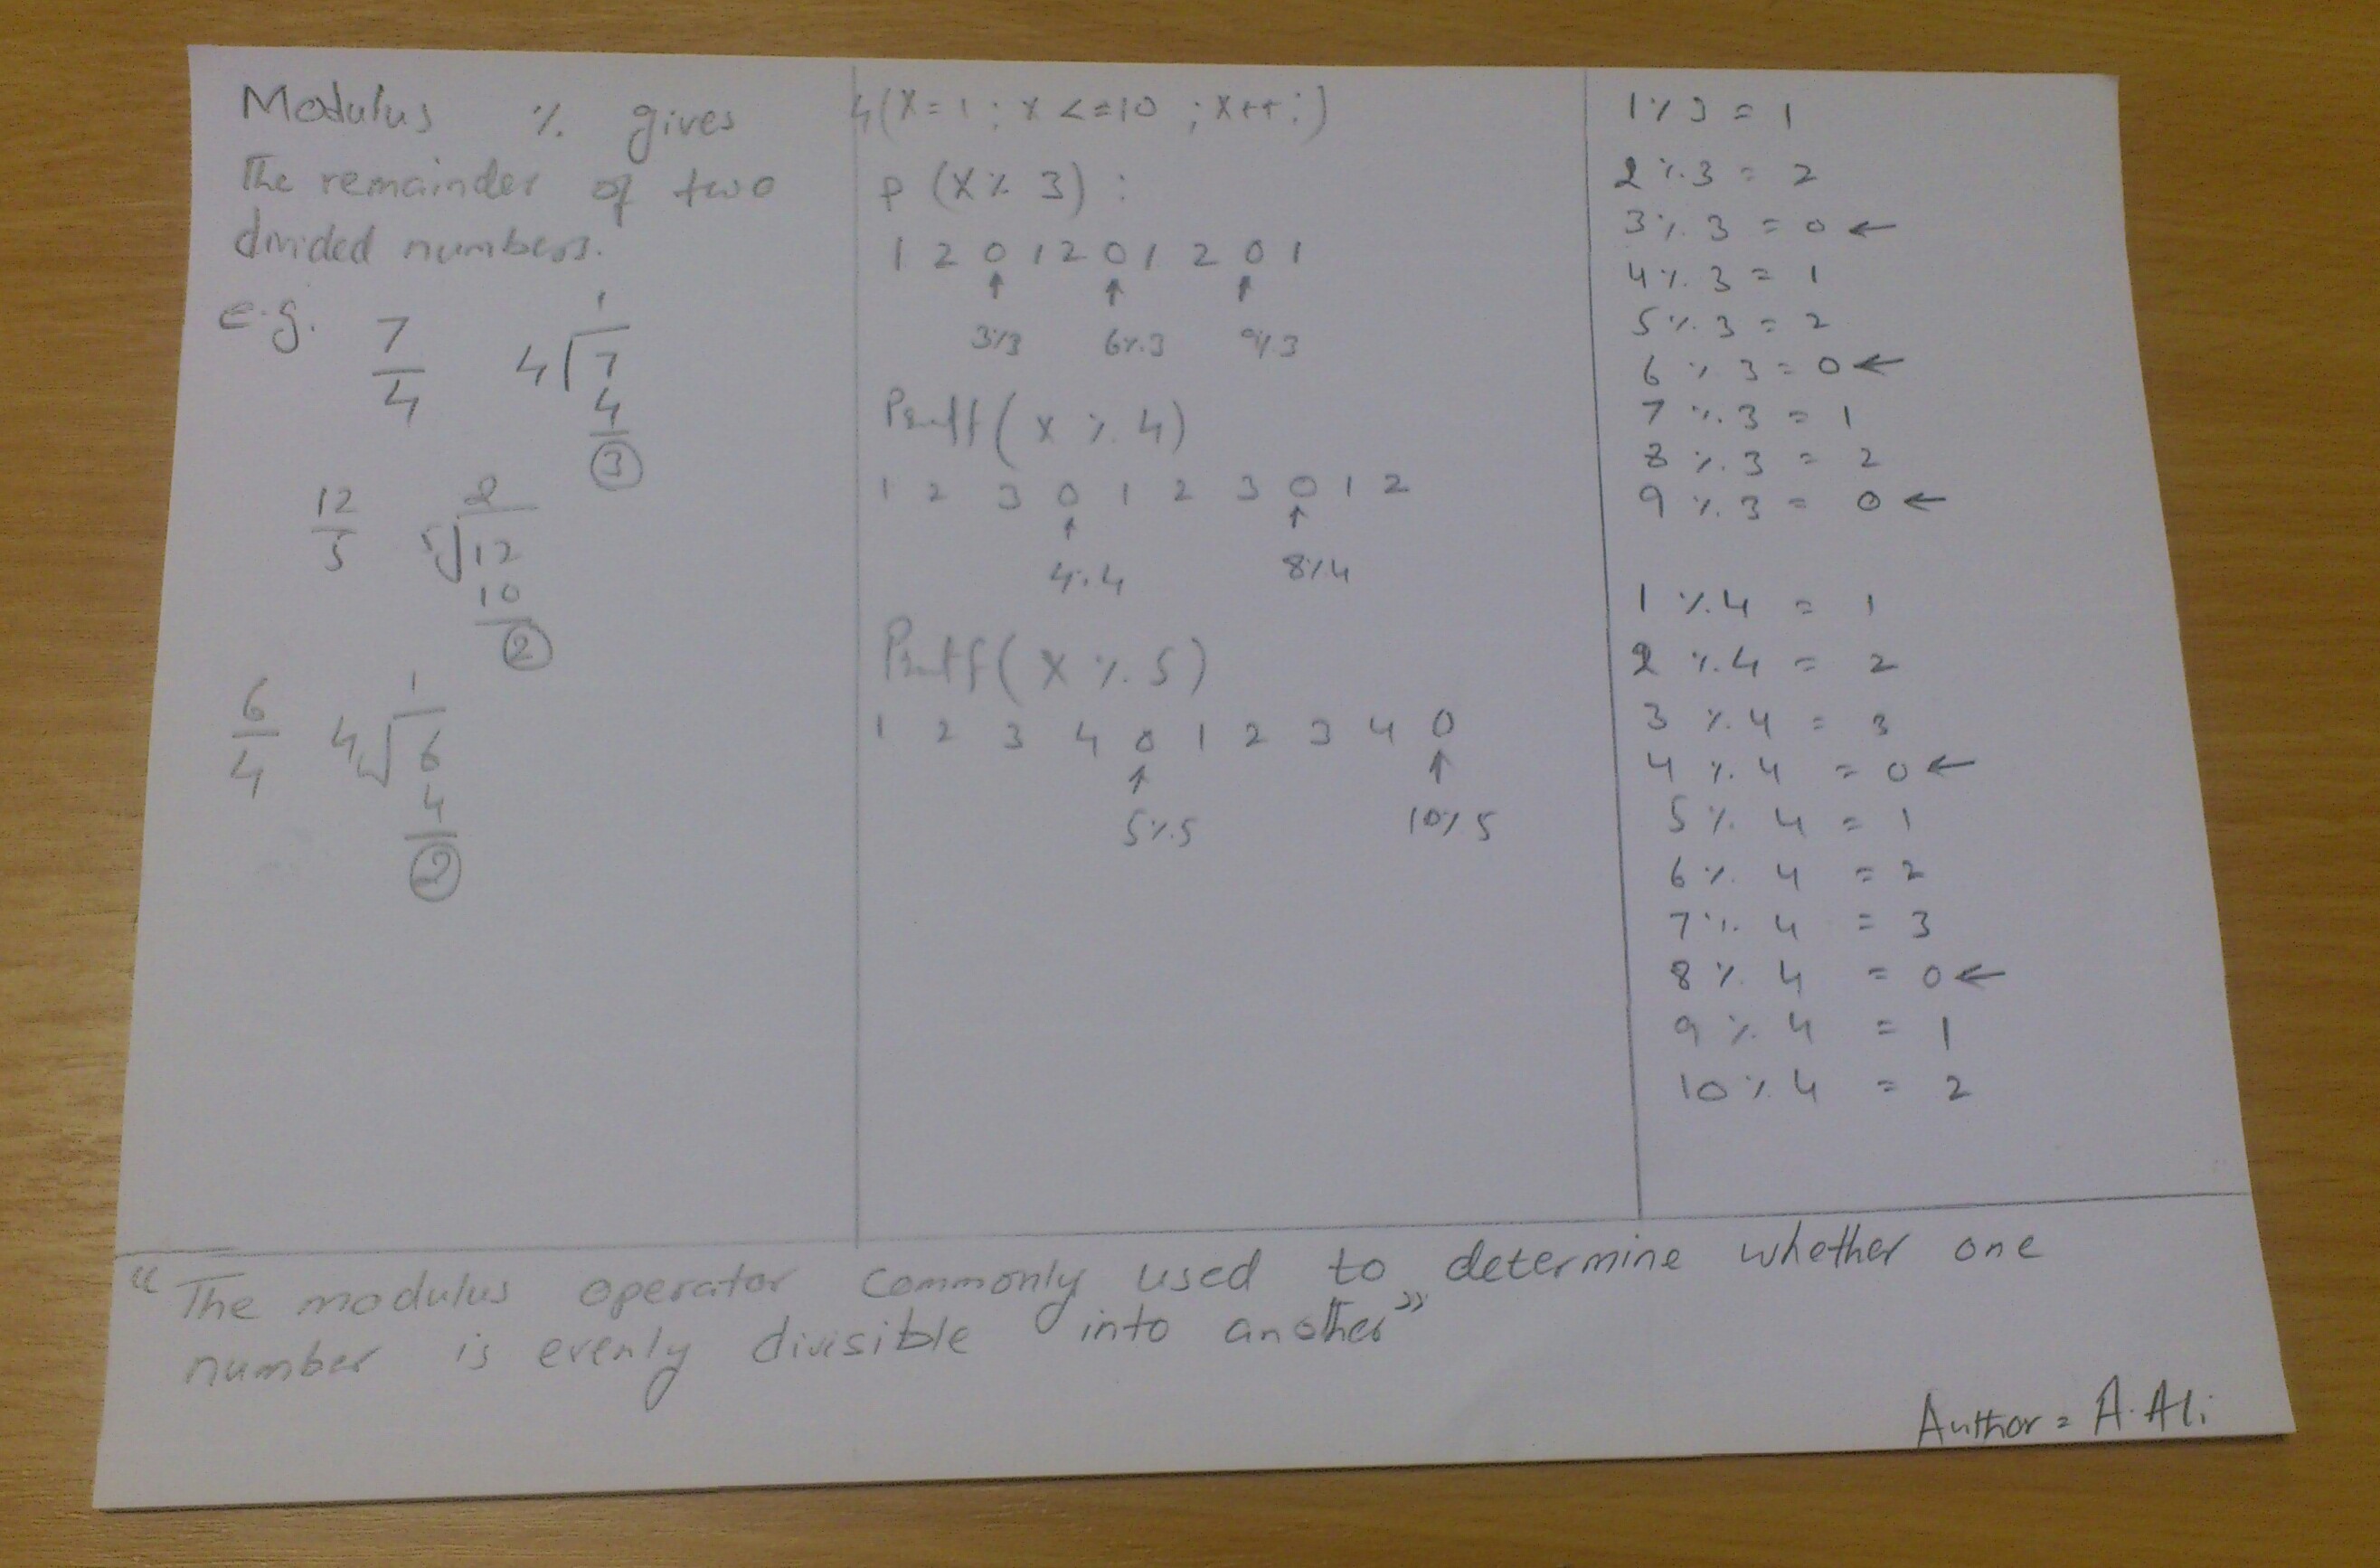 Modulus % gives
The remainder of two
divided numbers.
e.g.
7
4
1
4 7
4
3
12
5
2
5 12
10
2
6
4
1
4 6
4
2
(X=1; x<=10; x++;)
P (X % 3);
1 2 0 1 2 0 1 2 0 1
↑ ↑ ↑
3%3 6%3 9%3
Printf(x % 4)
1 2 3 0 1 2 3 0 1 2
↑ ↑
4%4 8%4
Printf(X % 5)
1 2 3 4 0 1 2 3 4 0
↑ ↑
5%5 10%5
1%3 = 1
2%3 = 2
3%3 = 0 ←
4%3 = 1
5%3 = 2
6%3 = 0 ←
7%3 = 1
8%3 = 2
9%3 = 0 ←
1%4 = 1
2%4 = 2
3%4 = 3
4%4 = 0 ←
5%4 = 1
6%4 = 2
7%4 = 3
8%4 = 0 ←
9%4 = 1
10%4 = 2
"The modulus operator commonly used to determine whether one
number is evenly divisible into another"
Author = A. Ali